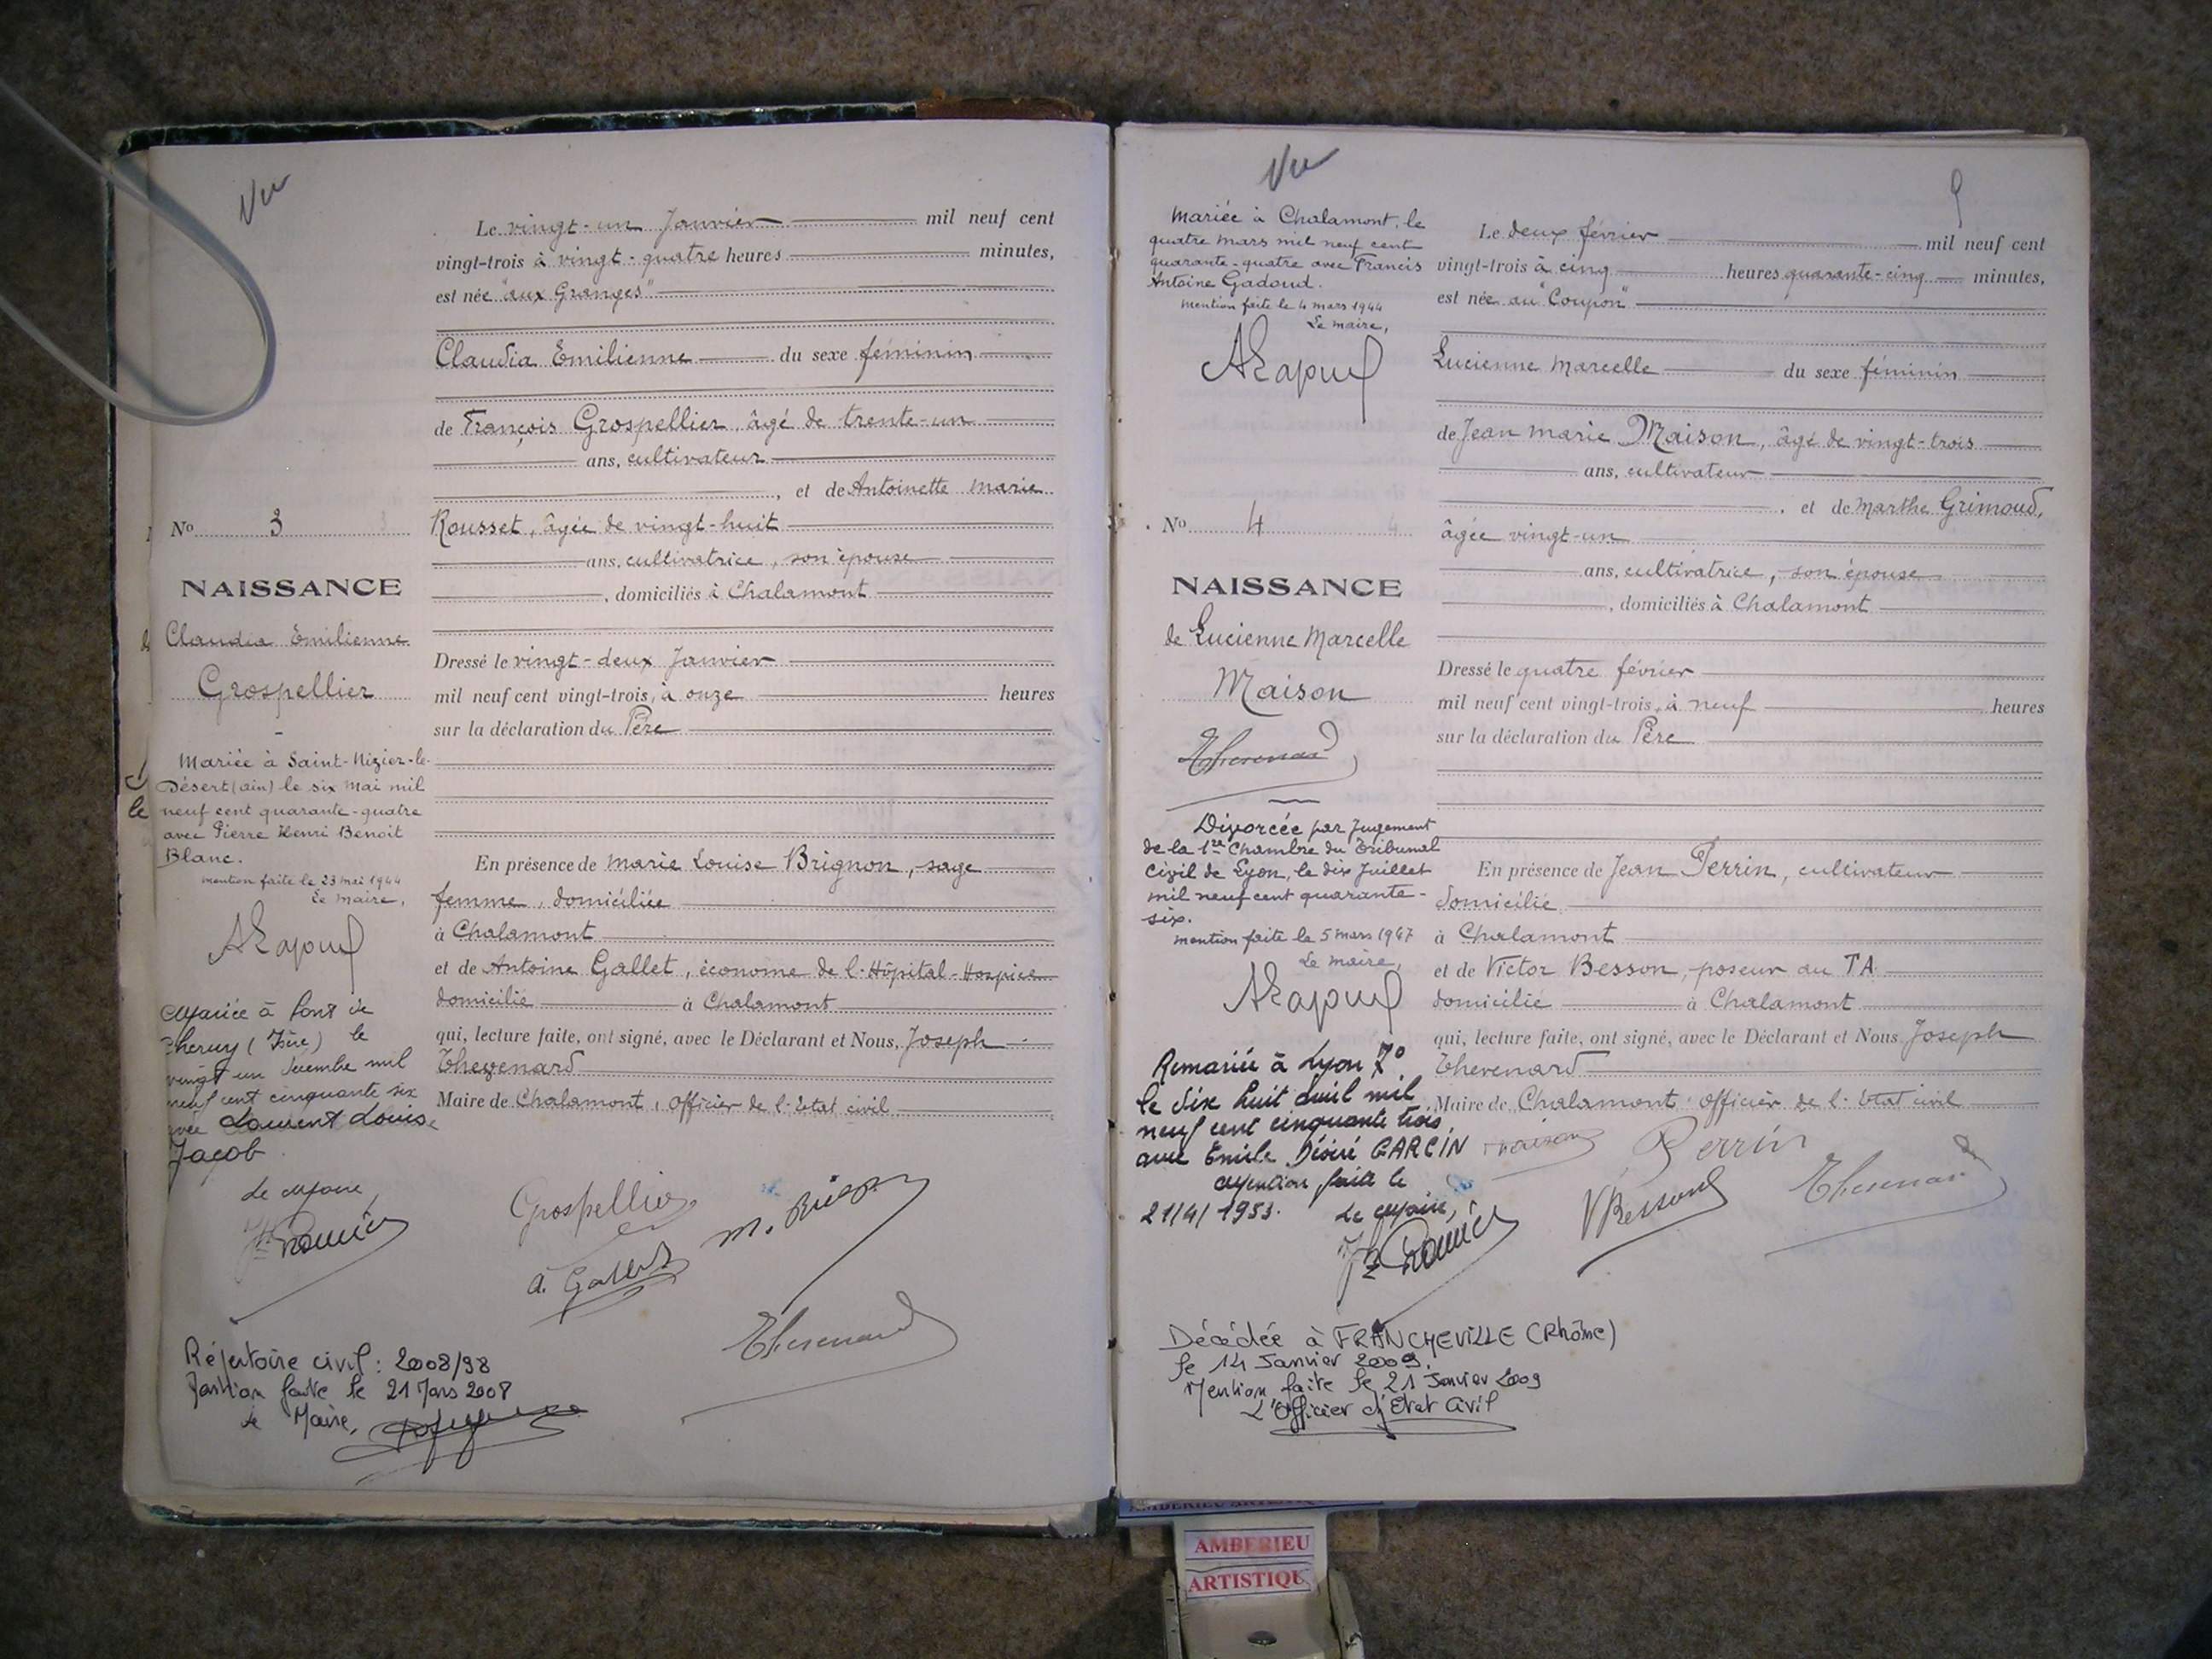 Vu
Le vingt-un Janvier mil neuf cent
vingt-trois à vingt-quatre heures minutes,
est née "aux Granges"
Claudia Emilienne du sexe féminin
de François Grospellier, âgé de trente-un
ans, cultivateur
, et de Antoinette Marie
Rousset, âgée de vingt-huit
ans, cultivatrice, son épouse
, domiciliés à Chalamont
Dressé le vingt-deux Janvier
mil neuf cent vingt-trois, à onze heures
sur la déclaration du Père
En présence de Marie Louise Brignon, sage
femme, domiciliée
à Chalamont
et de Antoine Gallet, économe de l'Hôpital-Hospice
domicilié à Chalamont
qui, lecture faite, ont signé, avec le Déclarant et Nous, Joseph
Thevenard
Maire de Chalamont, Officier de l'Etat civil
Grospellier
A. Gallet
Thevenard
No 3
NAISSANCE
Claudia Emilienne
Grospellier
Mariée à Saint-Nizier-le-
Désert (Ain) le six Mai mil
neuf cent quarante-quatre
avec Pierre Henri Benoit
Blanc.
Mention faite le 23 mai 1944
Le Maire,
Mariée à Pont de
Cheruy (Isère) le
vingt un décembre mil
neuf cent cinquante six
avec Laurent Louis
Jacob
Le Maire,
Répertoire civil : 2008/98
faite le 21 Mars 2008
Le Maire,
Vu
9
Mariée à Chalamont, le
quatre Mars mil neuf cent
quarante-quatre avec Francis
Antoine Gadoud.
Mention faite le 4 mars 1944
Le Maire,
No 4
NAISSANCE
de Lucienne Marcelle
Maison
Thevenard
Divorcée par Jugement
de la 1re Chambre du Tribunal
Civil de Lyon, le dix Juillet
mil neuf cent quarante-
six.
Mention faite le 5 mars 1947
Le Maire,
Remariée à Lyon 7°
le dix huit avril mil
neuf cent cinquante trois
avec Emile Désiré GARCIN
Mention faite le
21/4/1953. Le Maire,
Décédée à FRANCHEVILLE (Rhône)
le 14 Janvier 2009.
Mention faite le 21 Janvier 2009
L'Officier d'Etat Civil
Le deux février mil neuf cent
vingt-trois à cinq heures quarante-cinq minutes,
est née au "Coupon"
Lucienne Marcelle du sexe féminin
de Jean Marie Maison, âgé de vingt-trois
ans, cultivateur
, et de Marthe Grimoud,
âgée vingt-un
ans, cultivatrice, son épouse
, domiciliés à Chalamont
Dressé le quatre février
mil neuf cent vingt-trois, à neuf heures
sur la déclaration du Père
En présence de Jean Perrin, cultivateur
domicilié
à Chalamont
et de Victor Besson, poseur au TA
domicilié à Chalamont
qui, lecture faite, ont signé, avec le Déclarant et Nous Joseph
Thevenard
Maire de Chalamont Officier de l'Etat civil
Maison Perrin
V Besson Thevenard
AMBERIEU
ARTISTIQUE